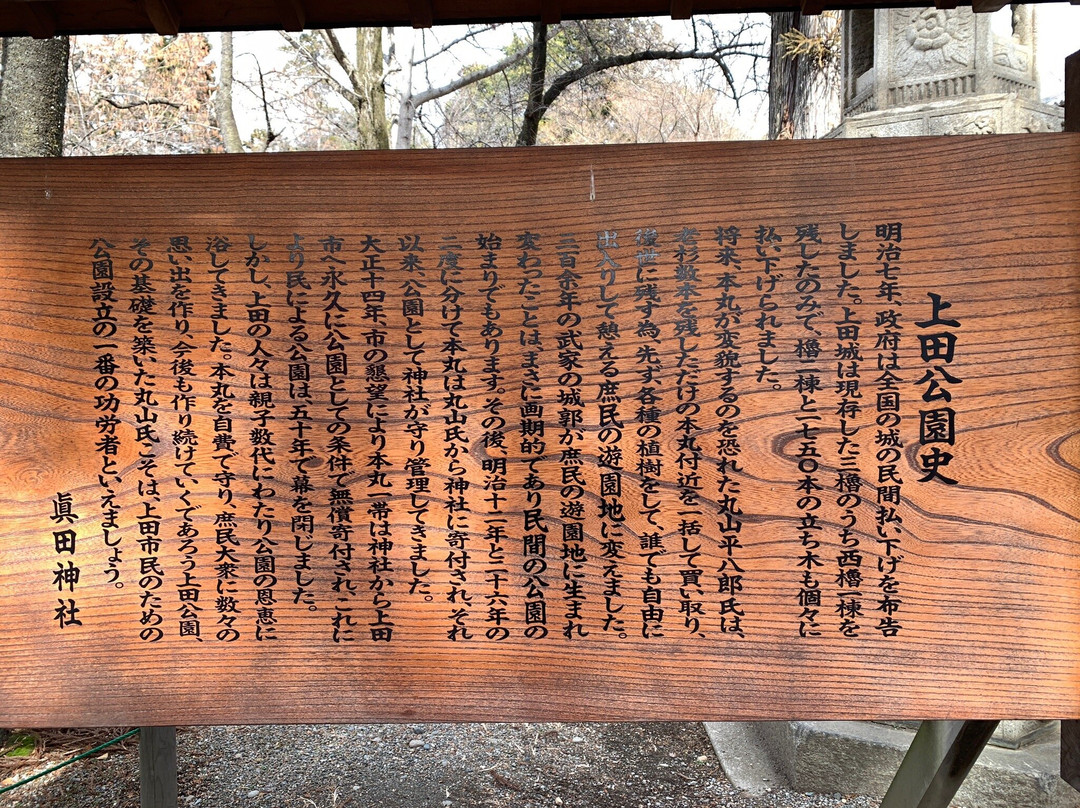 上田公園史
明治七年、政府は全国の城の民間払い下げを布告
しました。上田城は現存した三櫓のうち西櫓一棟を
残したのみで、櫓一棟と一七五〇本の立ち木も個々に
払い下げられました。
将来、本丸が変貌するのを恐れた丸山平八郎氏は、
老杉数本を残しただけの本丸付近を一括して買い取り、
後世に残す為、先ず、各種の植樹をして、誰でも自由に
出入りして憩える庶民の遊園地に変えました。
三百余年の武家の城郭が庶民の遊園地に生まれ
変わったことは、まさに画期的であり民間の公園の
始まりでもあります。その後、明治十一年と二十六年の
二度に分けて本丸は丸山氏から神社に寄付され、それ
以来、公園として神社が守り管理してきました。
大正十四年、市の懇望により本丸一帯は神社から上田
市へ永久に公園としての条件で無償寄付され、これに
より民による公園は、五十年で幕を閉じました。
しかし、上田の人々は親子数代にわたり公園の恩恵に
浴してきました。本丸を自費で守り、庶民大衆に数々の
思い出を作り、今後も作り続けていくであろう上田公園、
その基礎を築いた丸山氏こそは、上田市民のための
公園設立の一番の功労者といえましょう。
眞田神社